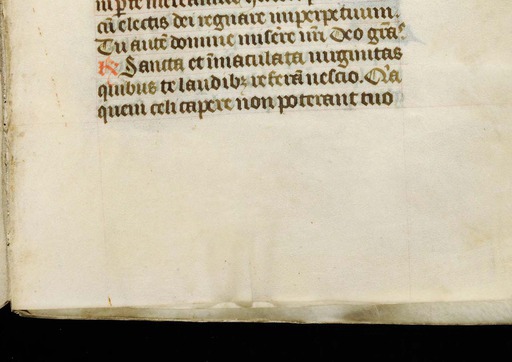 cū electis dei regnare imperpetuum.
Tu autē domine misere nr̄i Deo grās
R Sancta et īmaculata uirginitas
quibus te laudibꝫ referā nescio. Q̄a
quem celi capere non poterant tuo